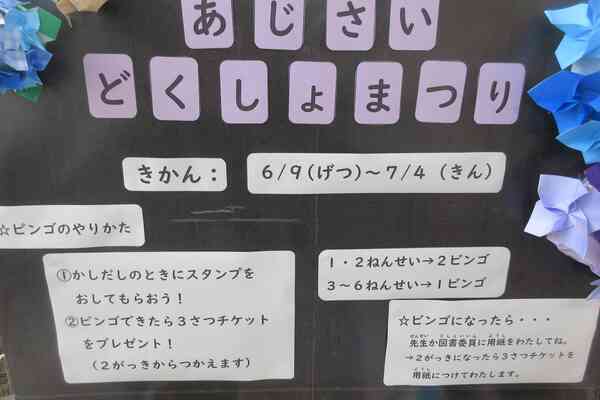 あじさい
どくしょまつり
きかん：
６/９(げつ)～７/４（きん）
☆ビンゴのやりかた
①かしだしのときにスタンプを
おしてもらおう！
②ビンゴできたら３さつチケット
をプレゼント！
（２がっきからつかえます）
１・２ねんせい→２ビンゴ
３～６ねんせい→１ビンゴ
☆ビンゴになったら・・・
先生か図書委員に用紙をわたしてね。
→２がっきになったら３さつチケットを
用紙につけてわたします。